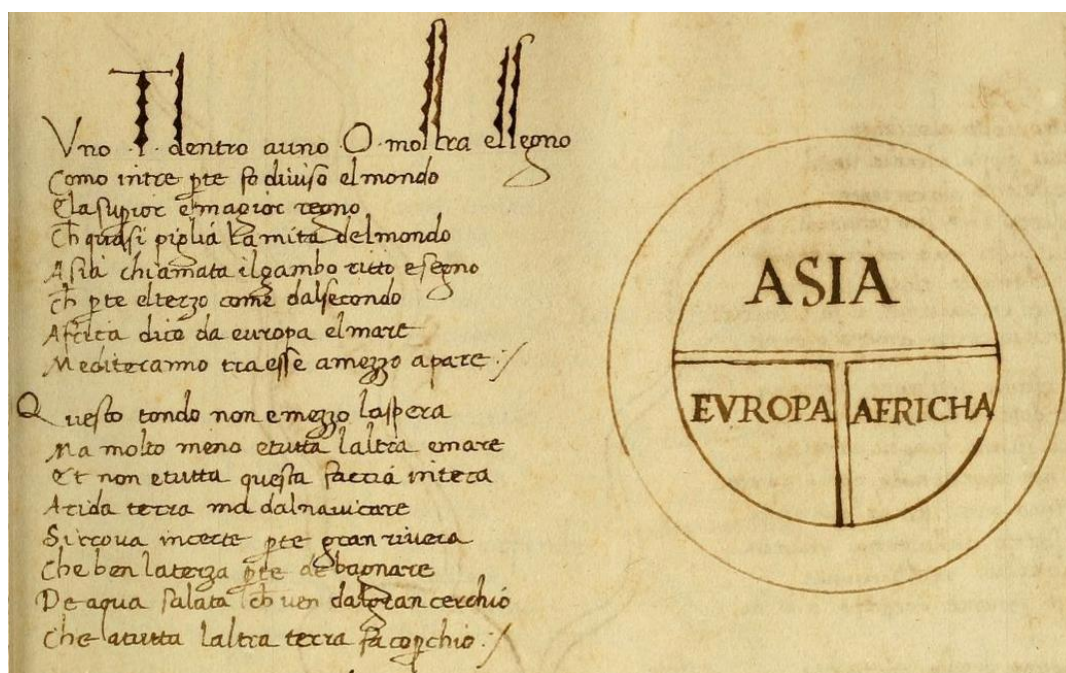 Vno .T. dentro auno O. mostra el segno
Como intre pte fo diuiso elmondo
Elasupior e magior regno
Ch quasi piglia la mita delmondo
Asia chiamata ilgambo ritto e segno
Ch pte elterzo come dalsecondo
Africa dico da europa elmare
Mediteranno tra esse amezzo apare :/
Questo tondo non e mezzo laspera
Ma molto meno etutta laltra emare
Et non etutta questa faccia intera
Arida terra ma dalnauicare
Sitroua incerte pte gran riuera
Che ben laterza pte de bagnare
De aqua salata ch uen dalgran cerchio
Che atutta laltra terra fa copchio :/
ASIA
EVROPA
AFRICHA